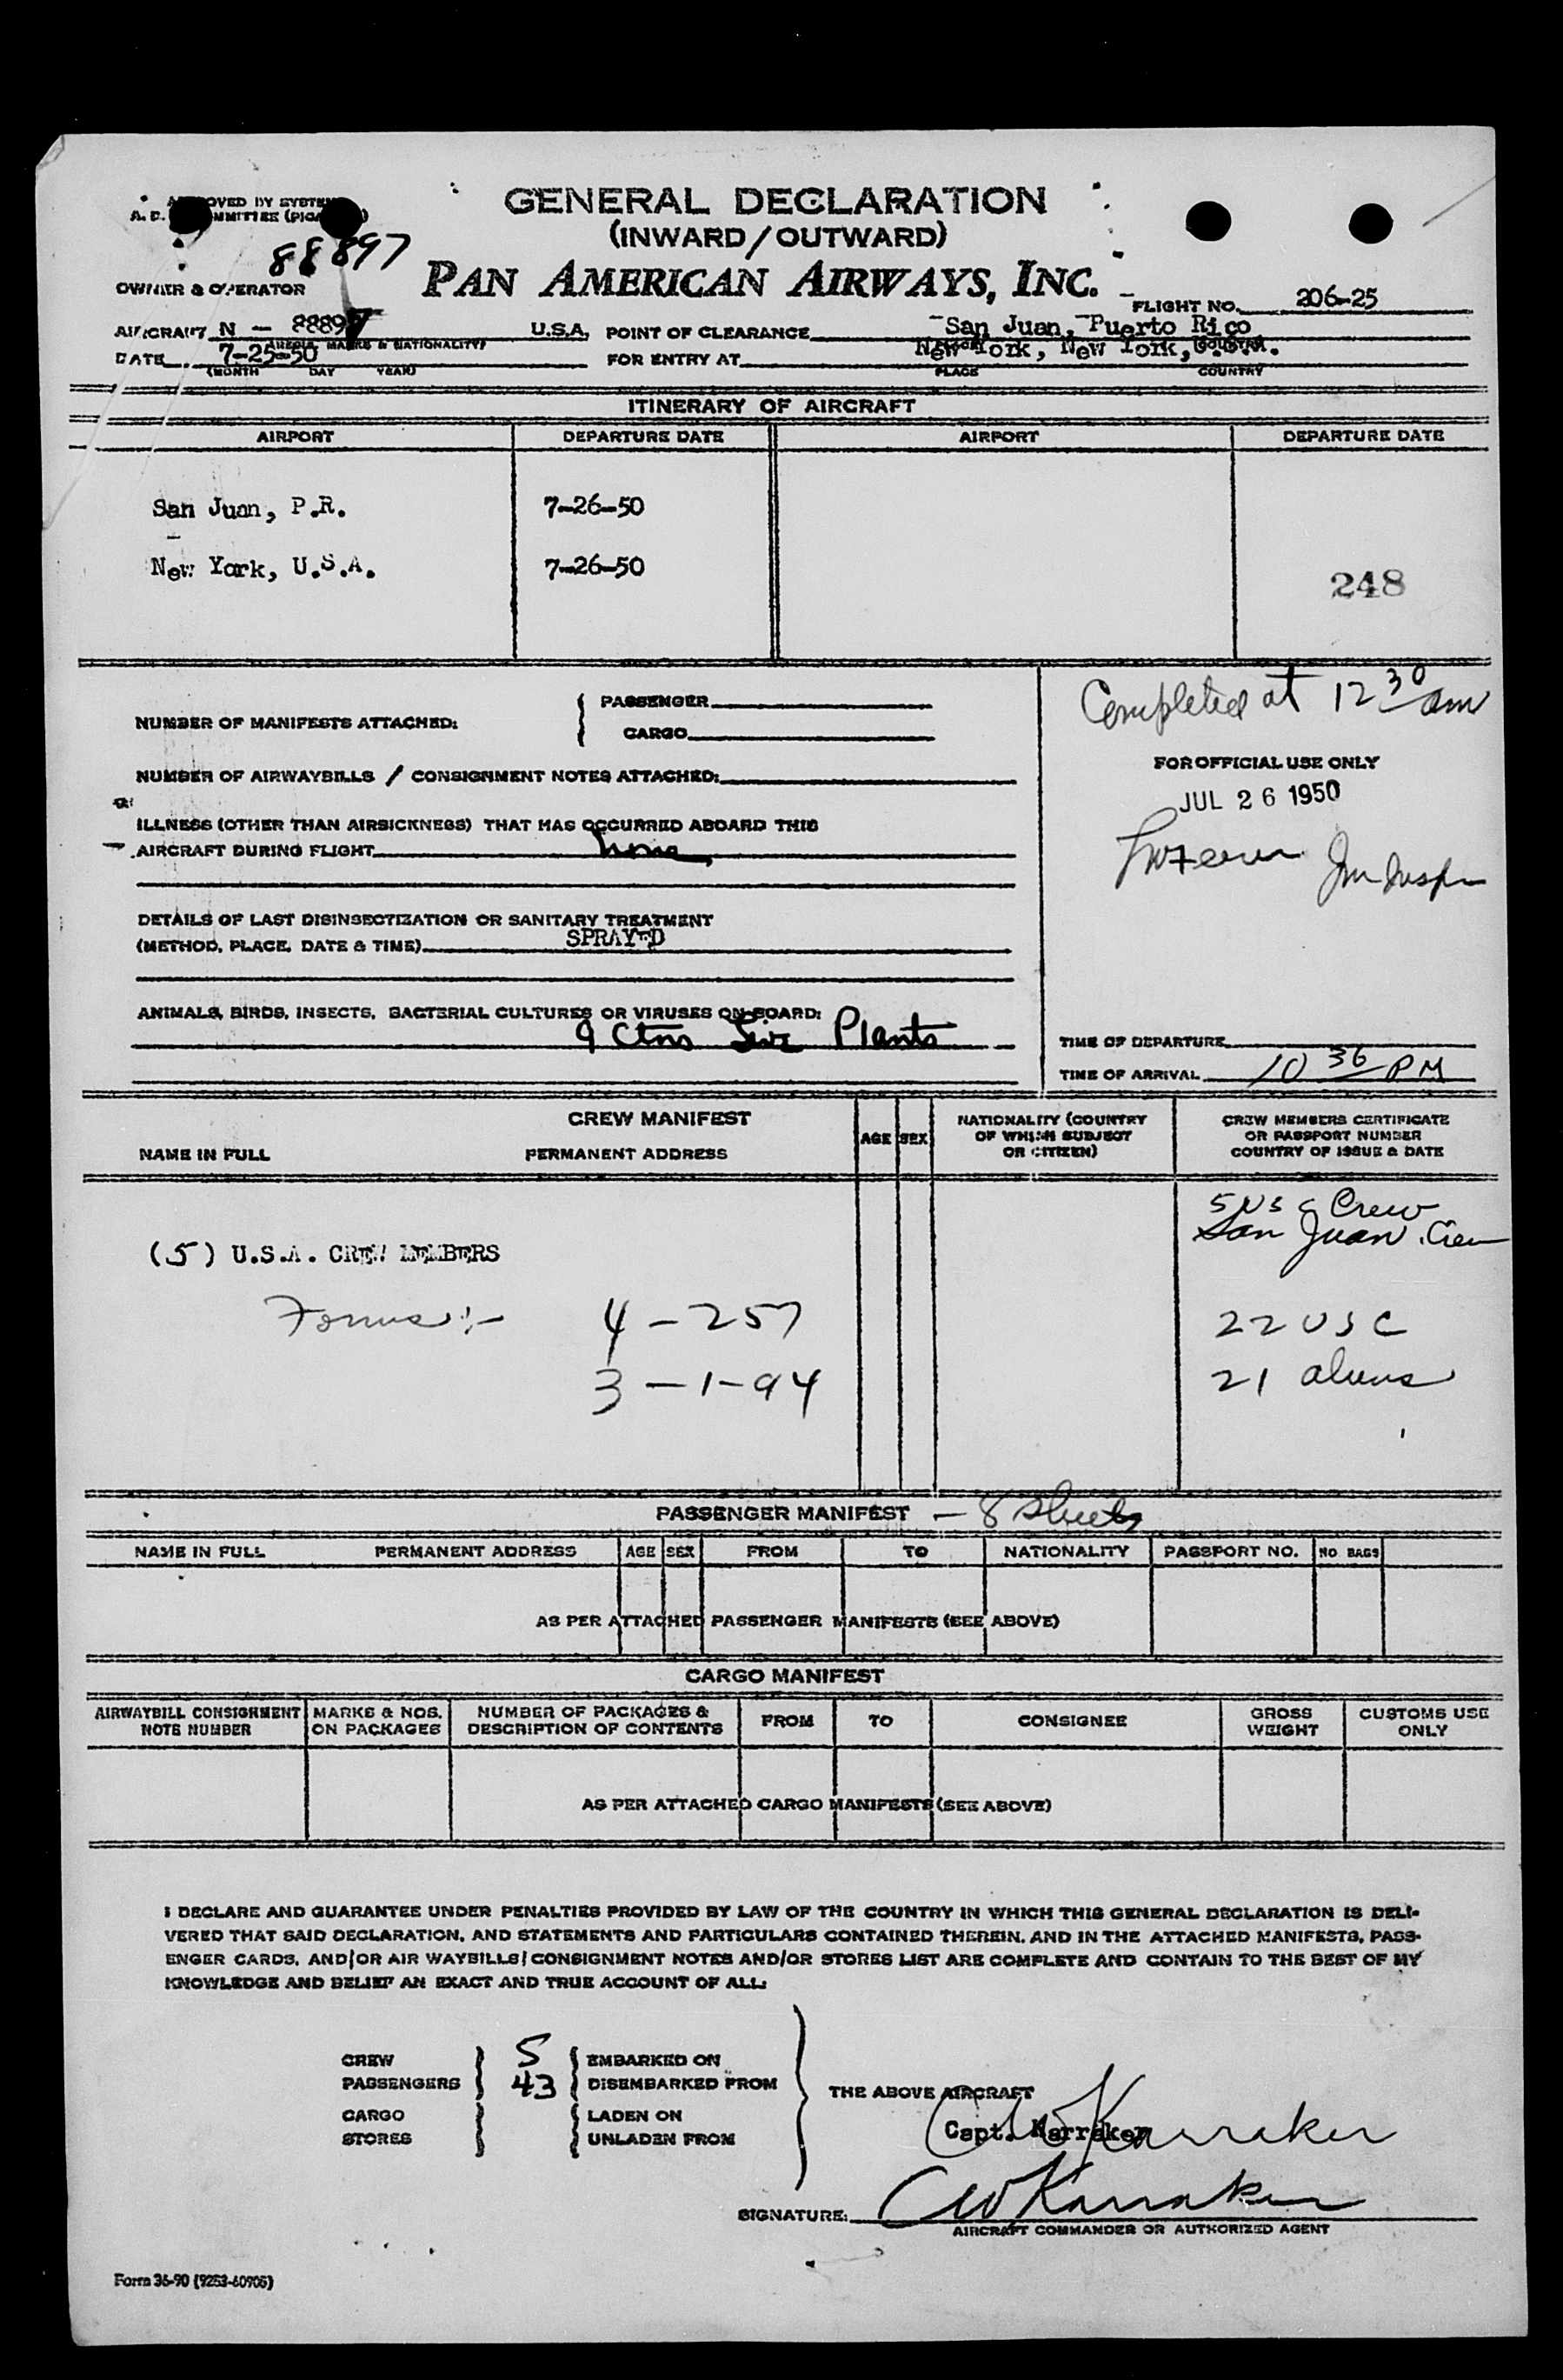 GENERAL DECLARATION
(INWARD/OUTWARD)
PAN AMERICAN AIRWAYS, INC.
88897
OWNER & OPERATOR
FLIGHT NO. 206-25
AIRCRAFT N - 88897 U.S.A. POINT OF CLEARANCE San Juan, Puerto Rico
DATE 7-25-50 FOR ENTRY AT New York, New York, U.S.A.
(MONTH DAY YEAR) PLACE COUNTRY
ITINERARY OF AIRCRAFT
AIRPORT DEPARTURE DATE AIRPORT DEPARTURE DATE
San Juan, P.R. 7-26-50
New York, U.S.A. 7-26-50
248
Completed at 12 30 am
NUMBER OF MANIFESTS ATTACHED: { PASSENGER
CARGO
FOR OFFICIAL USE ONLY
NUMBER OF AIRWAYBILLS / CONSIGNMENT NOTES ATTACHED:
JUL 26 1950
ILLNESS (OTHER THAN AIRSICKNESS) THAT HAS OCCURRED ABOARD THIS
AIRCRAFT DURING FLIGHT none
Imm Insp
DETAILS OF LAST DISINSECTIZATION OR SANITARY TREATMENT
(METHOD, PLACE, DATE & TIME) SPRAYED
ANIMALS, BIRDS, INSECTS, BACTERIAL CULTURES OR VIRUSES ON BOARD:
9 Ctns Live Plants
TIME OF DEPARTURE
TIME OF ARRIVAL 10 36 PM
CREW MANIFEST
NAME IN FULL PERMANENT ADDRESS AGE SEX NATIONALITY (COUNTRY OF WHICH SUBJECT OR CITIZEN) CREW MEMBERS CERTIFICATE OR PASSPORT NUMBER COUNTRY OF ISSUE & DATE
5 US C Crew
San Juan. Crew
(5) U.S.A. CREW MEMBERS
Forms:- 4 - 257 22 USC
3 - I-94 21 aliens
PASSENGER MANIFEST - 8 sheets
NAME IN FULL PERMANENT ADDRESS AGE SEX FROM TO NATIONALITY PASSPORT NO. NO BAGS
AS PER ATTACHED PASSENGER MANIFESTS (SEE ABOVE)
CARGO MANIFEST
AIRWAYBILL CONSIGNMENT NOTE NUMBER MARKS & NOS. ON PACKAGES NUMBER OF PACKAGES & DESCRIPTION OF CONTENTS FROM TO CONSIGNEE GROSS WEIGHT CUSTOMS USE ONLY
AS PER ATTACHED CARGO MANIFESTS (SEE ABOVE)
I DECLARE AND GUARANTEE UNDER PENALTIES PROVIDED BY LAW OF THE COUNTRY IN WHICH THIS GENERAL DECLARATION IS DELI-
VERED THAT SAID DECLARATION, AND STATEMENTS AND PARTICULARS CONTAINED THEREIN, AND IN THE ATTACHED MANIFESTS, PASS-
ENGER CARDS, AND/OR AIR WAYBILLS/CONSIGNMENT NOTES AND/OR STORES LIST ARE COMPLETE AND CONTAIN TO THE BEST OF MY
KNOWLEDGE AND BELIEF AN EXACT AND TRUE ACCOUNT OF ALL:
CREW } 5 { EMBARKED ON
PASSENGERS } 43 { DISEMBARKED FROM
THE ABOVE AIRCRAFT
CARGO } { LADEN ON
STORES } { UNLADEN FROM
Capt. Karraker
CW Karraker
SIGNATURE: CW Karraker
AIRCRAFT COMMANDER OR AUTHORIZED AGENT
Form 36-90 (9253-60905)